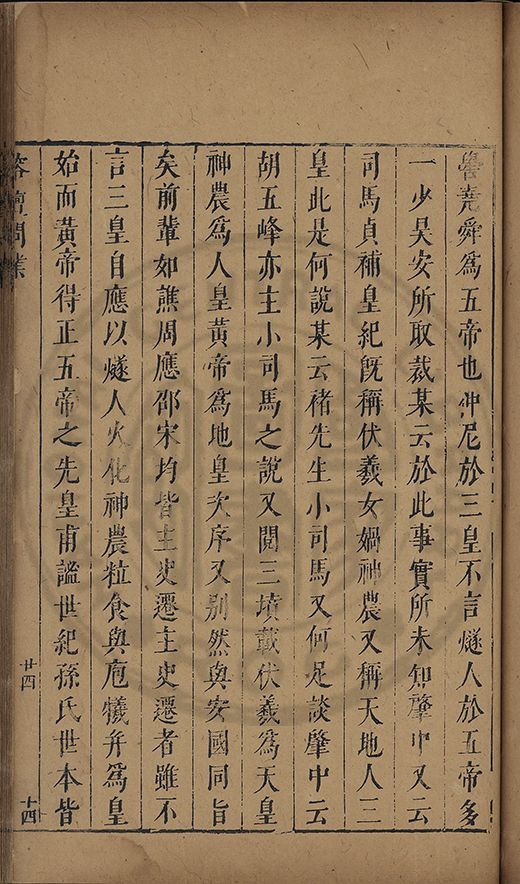 嚳堯舜爲五帝也仲尼於三皇不言燧人於五帝多
一少昊安所取裁某云於此事實所未知肇中又云
司馬貞補皇紀旣稱伏羲女媧神農又稱天地人三
皇此是何說某云褚先生小司馬又何足談肇中云
胡五峰亦主小司馬之說又閱三墳載伏羲爲天皇
神農爲人皇黃帝爲地皇次序又别然與安國同旨
矣前輩如譙周應邵宋均皆主史遷主史遷者雖不
言三皇自應以燧人火化神農粒食與庖犧并爲皇
始而黃帝得正五帝之先皇甫謐世紀孫氏世本皆
榕壇問業
廿四
十四